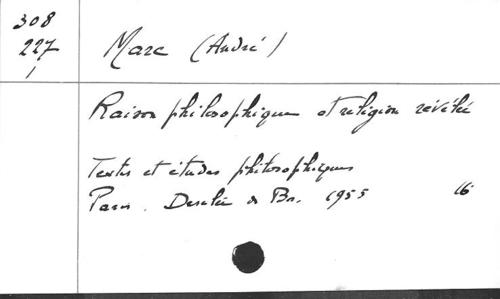 308
227
/
Marc (André)
Raison philosophique et religion révélée
Textes et études philosophiques
Paris. Desclée de Br. 1955 16